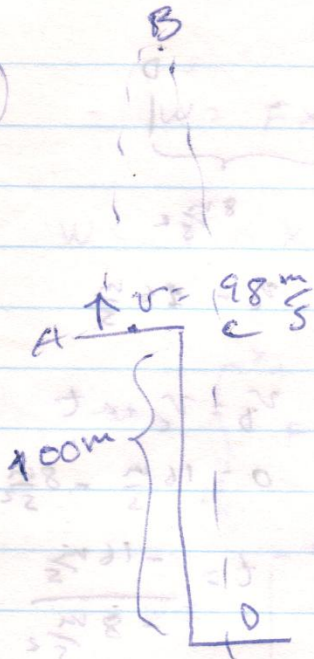 B
A ↑ v = 98 m/s c
100m
0